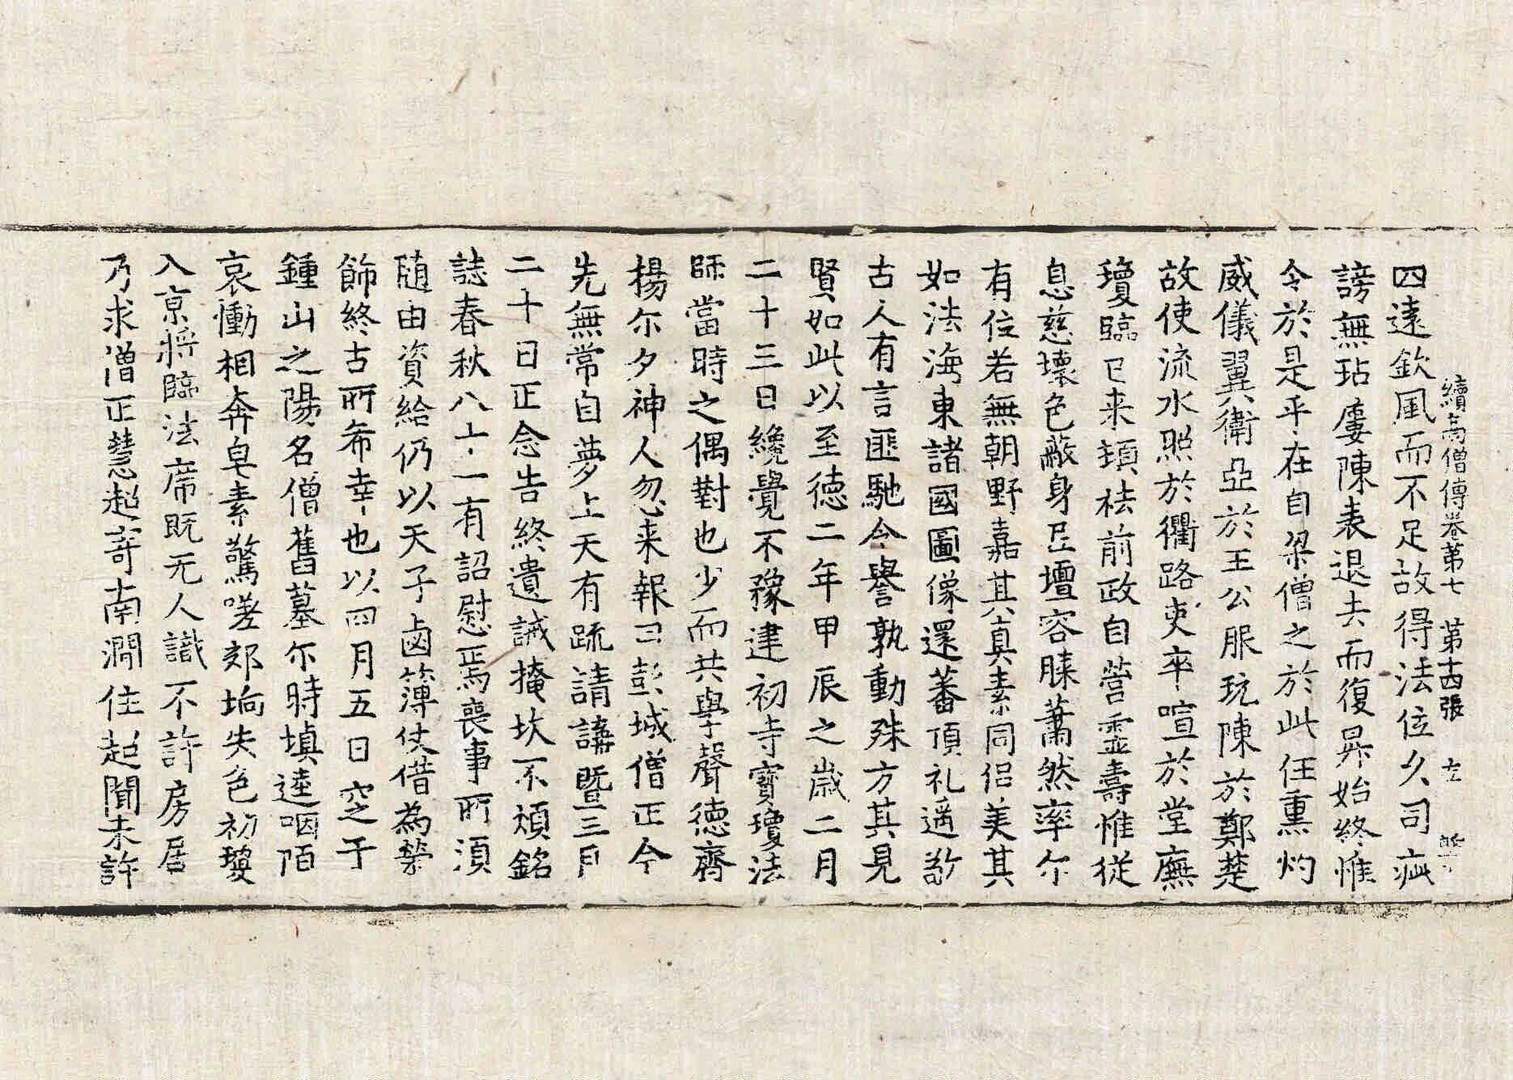 續高僧傳卷第七　第十四張　左
四遠欽風而不足故得法位久司疵
謗無玷屢陳表退去而復昇始終惟
令於是乎在自梁僧之於此任熏灼
威儀翼衛亞於王公服玩陳於鄭楚
故使流水照於衢路吏卒喧於堂廡
瓊臨已来頓祛前政自營靈壽惟従
息慈壞色蔽身尼壇容膝蕭然率尓
有位若無朝野嘉其真素同侣美其
如法海東諸國圖像還蕃頂礼遥敬
古人有言匪馳令譽孰動殊方其見
賢如此以至徳二年甲辰之歲二月
二十三日纔覺不豫建初寺寶瓊法
師當時之偶對也少而共學聲徳齊
楊尓夕神人忽来報曰彭城僧正今
先無常自夢上天有䟽請講暨三月
二十日正念告終遺誡掩坎不煩銘
誌春秋八十一有詔慰焉喪事所須
随由資給仍以天子鹵簿仗借為榮
飾終古所希幸也以四月五日窆于
鍾山之陽名僧舊墓尓時填逵咽陌
哀慟相奔皂素驚嗟郊坰失色初瓊
入京將臨法席既无人識不許房居
乃求僧正慧超寄南澗住超聞未許